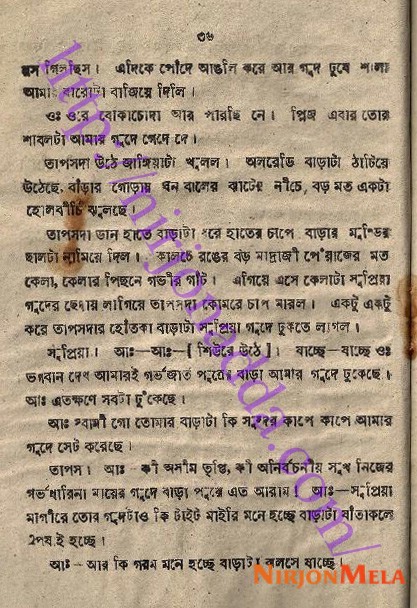 ৩৬
রস গিলছিস। এদিকে পোঁদে আঙলি করে আর গুদ চুষে শালা
আমার বারোটা বাজিয়ে দিলি।
ওঃ ওরে বোকাচোদা আর পারছি নে। প্লিজ এবার তোর
শাবলটা আমার গুদে গেদে দে।
তাপসদা উঠে জাঙ্গিয়াটা খুলল। অলরেডি বাড়াটা ঠাটিয়ে
উঠেছে, বাঁড়ার গোড়ায় ঘন বালের ঝাটের নীচে, বড় মত একটা
হোলবীচি ঝুলছে।
তাপসদা ডান হাতে বাড়াটা ধরে হাতের চাপে বাড়ার মুন্ডির
ছালটা নামিয়ে দিল। কালচে রঙের বড় মাদ্রাজী পেঁয়াজের মত
কেলা, কেলার পিছনে গভীর গাঁট। এগিয়ে এসে কেলাটা সুপ্রিয়া
গুদের ছেদায় লাগিয়ে তাপসদা কোমরে চাপ মারল। একটু একটু
করে তাপসদার হোঁতকা বাড়াটা সুপ্রিয়া গুদে ঢুকতে লাগল।
সুপ্রিয়া। আঃ—আঃ—[ শিউরে উঠে ]। যাচ্ছে—যাচ্ছে ওঃ
ভগবান দেখ আমারই গর্ভজাত পুত্রের বাড়া আমার গুদে ঢুকেছে।
আঃ এতক্ষণে সবটা ঢুকেছে।
আঃ স্বামী গো তোমার বাড়াটা কি সুন্দর কাপে কাপে আমার
গুদে সেট করেছে।
তাপস। আঃ—কী অসীম তৃপ্তি, কী অনির্বচনীয় সুখ নিজের
গর্ভধারিনী মায়ের গুদে বাড়া পুরে এত আরাম! আঃ—সুপ্রিয়া
মাগীরে তোর গুদটাও কি টাইট মাইরি মনে হচ্ছে বাড়াটা যাঁতাকলে
হচ্ছে।
আঃ—আর কি গরম মনে হচ্ছে বাড়াটা ঝলসে যাচ্ছে।
NIRJONMELA